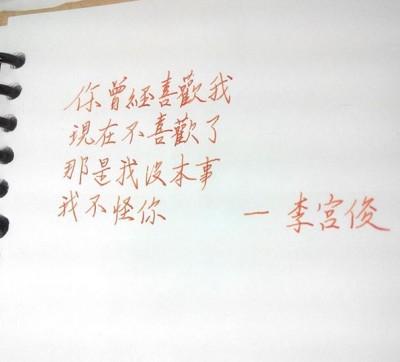 你曾經喜歡我
現在不喜歡了
那是我沒本事
我不怪你
— 李宮俊